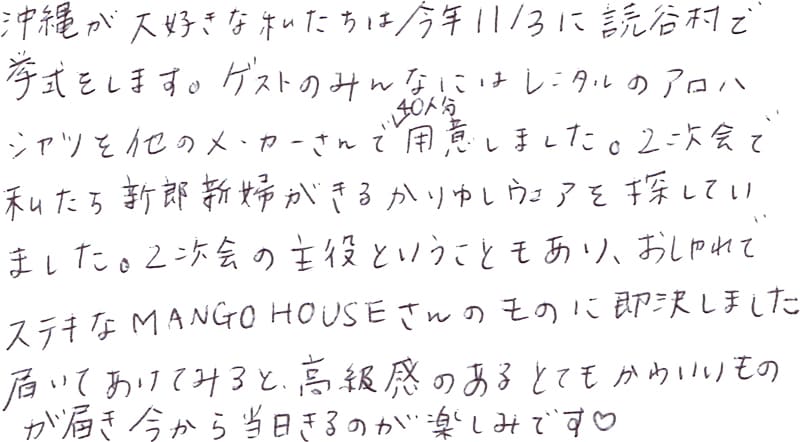 沖縄が大好きな私たちは今年11/3に読谷村で
挙式をします。ゲストのみんなにはレンタルのアロハ
40人分
シャツを他のメーカーさんで用意しました。2次会で
私たち新郎新婦がきるかりゆしウェアを探してい
ました。2次会の主役ということもあり、おしゃれで
ステキなMANGO HOUSEさんのものに即決しました
届いてあけてみると、高級感のあるとてもかわいいもの
が届き今から当日きるのが楽しみです♡